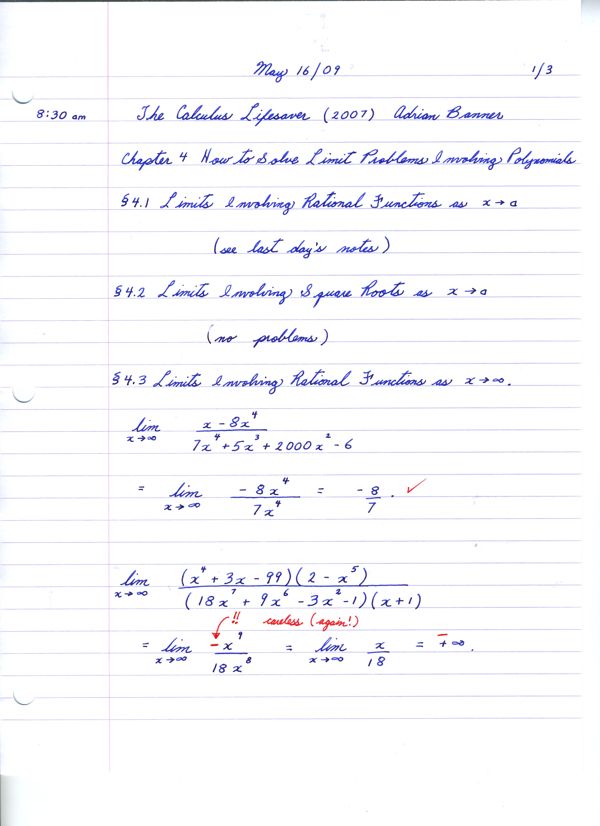 May 16/09 1/3
8:30 am The Calculus Lifesaver (2007) Adrian Banner
Chapter 4 How to Solve Limit Problems Involving Polynomials
§4.1 Limits Involving Rational Functions as x→a
(see last day's notes)
§4.2 Limits Involving Square Roots as x→a
(no problems)
§4.3 Limits Involving Rational Functions as x→∞.
lim x→∞ (x - 8x⁴) / (7x⁴ + 5x³ + 2000x² - 6)
= lim x→∞ (-8x⁴) / (7x⁴) = -8/7. ✓
lim x→∞ (x⁴ + 3x - 99)(2 - x⁵) / (18x⁷ + 9x⁶ - 3x² - 1)(x + 1)
!! careless (again!)
= lim x→∞ -x⁹ / 18x⁸ = lim x→∞ x/18 = ∓∞.